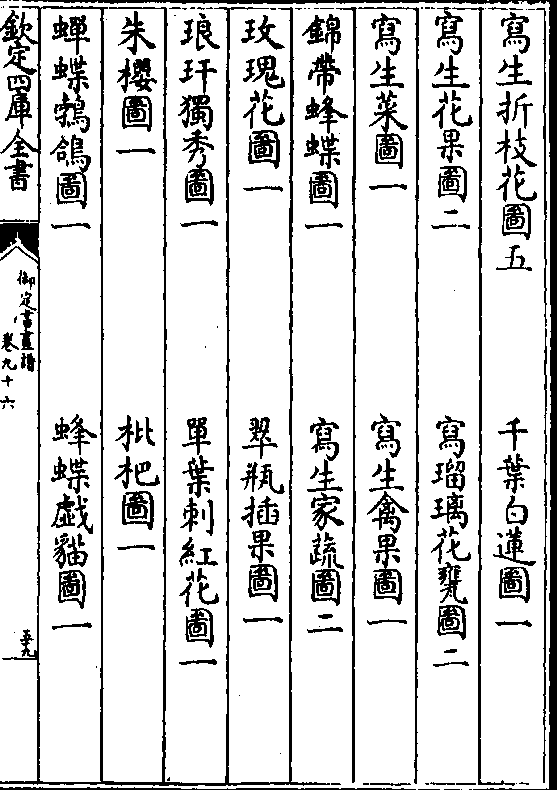 寫生折枝花圖五　千葉白蓮圖一
寫生花果圖二　寫瑠璃花甕圖二
寫生菜圖一　寫生禽果圖一
錦帶蜂蝶圖一　寫生家蔬圖二
玫瑰花圖一　翠瓶插果圖一
琅玕獨秀圖一　單葉刺紅花圖一
朱櫻圖一　枇杷圖一
蟬蝶鵓鴿圖一　蜂蝶戯貓圖一
欽定四庫全書
御定書畫譜
卷九十六
五十九